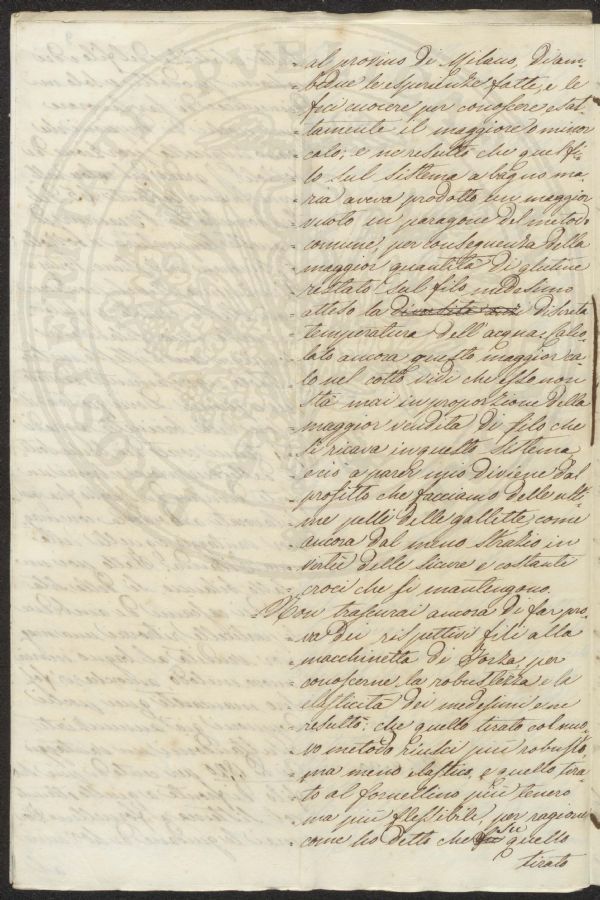 al provino di Milano, d'am=
=bedue le esperienze fatte, e le
=feci cuocere per conoscere esat=
=tamente il maggiore o minor
=calo; e ne resultò che quel fi=
=lo sul sistema a bagno ma=
=ria aveva prodotto un maggior
=vuoto in paragone del metodo
=comune, per conseguenza della
=maggior quantità di glutine
=restato sul filo medesimo
=atteso la discreta
=temperatura dell'acqua: Calco=
=lato ancora questo maggior ca=
=lo nel cotto vidi che esso non
=stà mai in proporzione della
=maggior rendita di filo che
=si ricava in questo sistema,
=e ciò a parer mio diviene dal
=profitto che facciamo delle ulti=
=me pelli delle gallette, come
=ancora dal meno strazio in
=virtù delle sicure e costanti
=croci che si mantengono.
Non trascurai ancora di far pro=
=va dei rispettivi fili alla
=macchinetta di Forza, per
=conoscerne la robustezza e la
=elasticità dei medesimi e ne
=resultò: che quello tirato col nuo=
=vo metodo riuscì più robusto,
=ma meno elastico, e quello tira=
=to al fornellino più tenero
=ma più flessibile, per ragione
=come ho detto che su quello
tirato